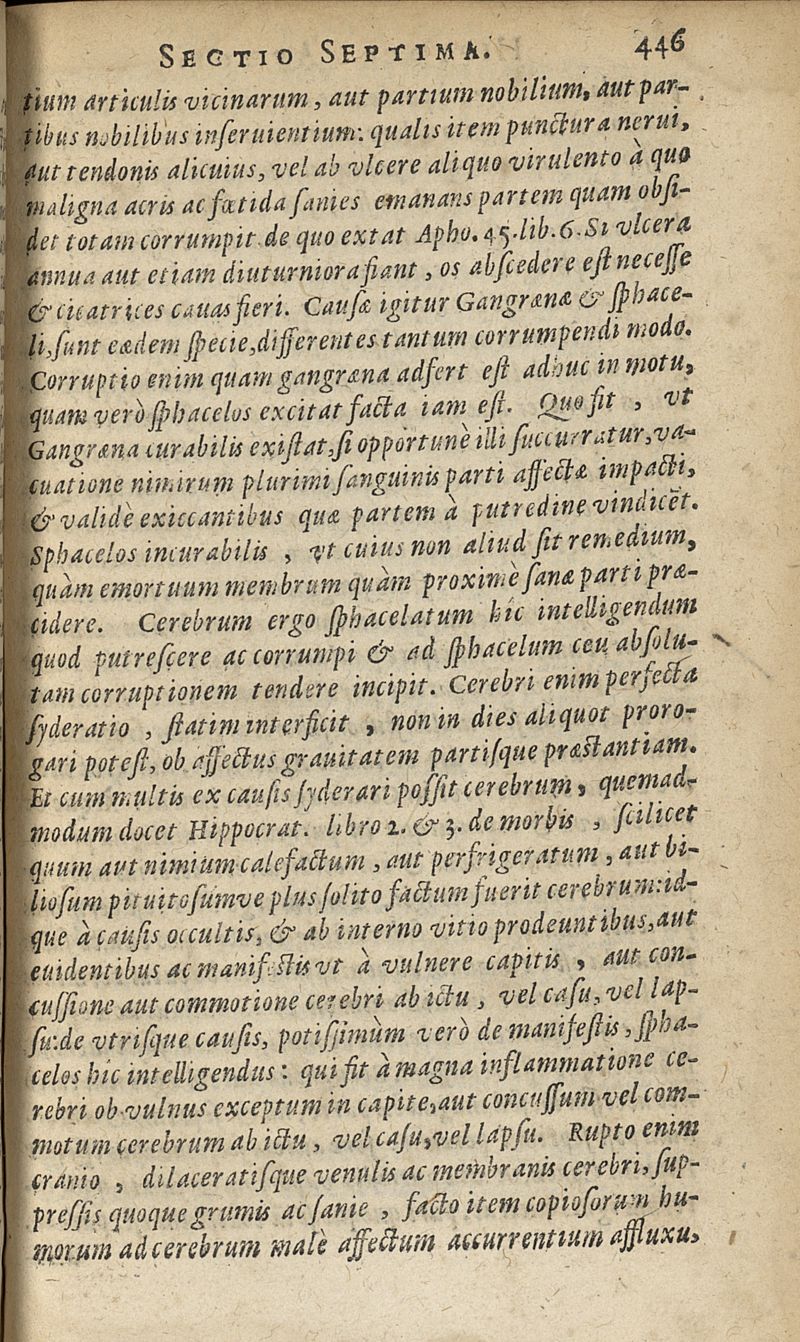 SECTIO SEPTIMA. 446
tium articulis vicinarum, aut partium nobilium, aut par-
tibus nobilibus inseruientium: qualis item punctura nerui,
aut tendonis alicuius, vel ab vlcere aliquo virulento à quo
maligna acris ac fœtida sanies emanans partem quam obsi-
det totam corrumpit. de quo extat Apho. 45. lib. 6. Si vlcera
annua aut etiam diuturniora fiant, os abscedere est necesse
& cicatrices cauas fieri. Causæ igitur Gangrænæ & sphace-
li, sunt eædem specie, differentes tantum corrumpendi modo.
Corruptio enim quam gangræna adfert est adhuc in motu,
quam verò sphacelos excitat facta iam est. Quo fit, vt
Gangræna curabilis existat, si opportunè illi succurratur, va-
cuatione nimirum plurimi sanguinis parti affectæ impacti,
& validè exiccantibus quæ partem à putredine vindicẽt.
Sphacelos incurabilis, vt cuius non aliud sit remedium,
quàm emortuum membrum quàm proximè sanæ parti præ-
cidere. Cerebrum ergo sphacelatum hîc intelligendum
quod putrescere ac corrumpi & ad sphacelum ceu absolu-
tam corruptionem tendere incipit. Cerebri enim perfecta
syderatio, statim interficit, non in dies aliquot proro-
gari potest, ob affectus grauitatem partisque præstantiam.
Et cum multis ex causis syderari possit cerebrum, quemad-
modum docet Hippocrat. libro 2. & 3. de morbis, scilicet
quum aut nimium calefactum, aut perfrigeratum, aut bi-
liosum pituitosumve plus solito factum fuerit cerebrum: id-
que à causis occultis, & ab interno vitio prodeuntibus, aut
euidentibus ac manifestis vt à vulnere capitis, aut con-
cussione aut commotione cerebri ab ictu, vel casu, vel lap-
su: de vtrisque causis, potissimùm verò de manifestis, spha-
celos hîc intelligendus: qui fit à magna inflammatione ce-
rebri ob vulnus exceptum in capite, aut concussum vel com-
motum cerebrum ab ictu, vel casu, vel lapsu. Rupto enim
cranio, dilaceratisque venulis ac membranis cerebri, sup-
pressis quoque grumis ac sanie, facto item copiosorum hu-
morum ad cerebrum malè affectum accurrentium affluxu,